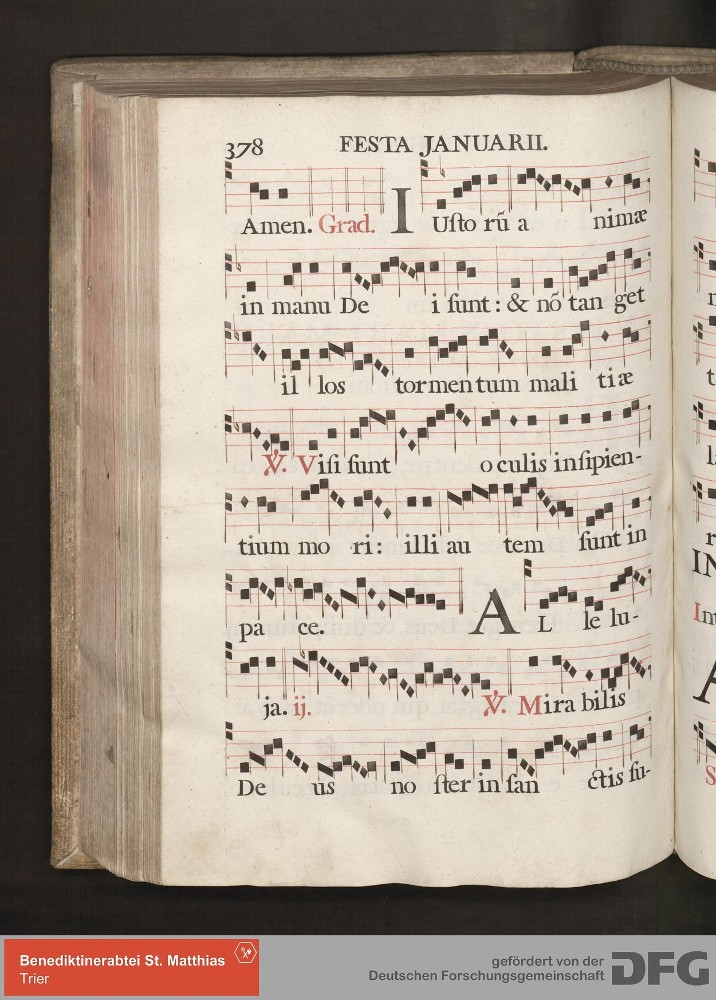 378 FESTA JANUARII.
Amen. Grad. I Uſto rũ a nimæ
in manu De i ſunt: & nõ tan get
il los tormentum mali tiæ
℣. Viſi ſunt oculis inſipien-
tium mo ri: illi au tem ſunt in
pa ce. AL le lu-
ja. ij. ℣. Mirabilis
De us no ſter in ſan ctis ſu-
Benediktinerabtei St. Matthias
Trier
gefördert von der
Deutschen Forschungsgemeinschaft DFG